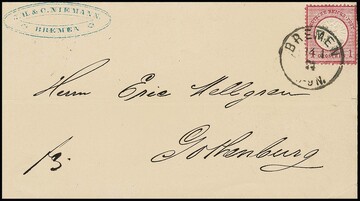 H. & C. NIEMANN
BREMEN
BREMEN
Herrn Eric Mellgren
fr.
Gothenburg